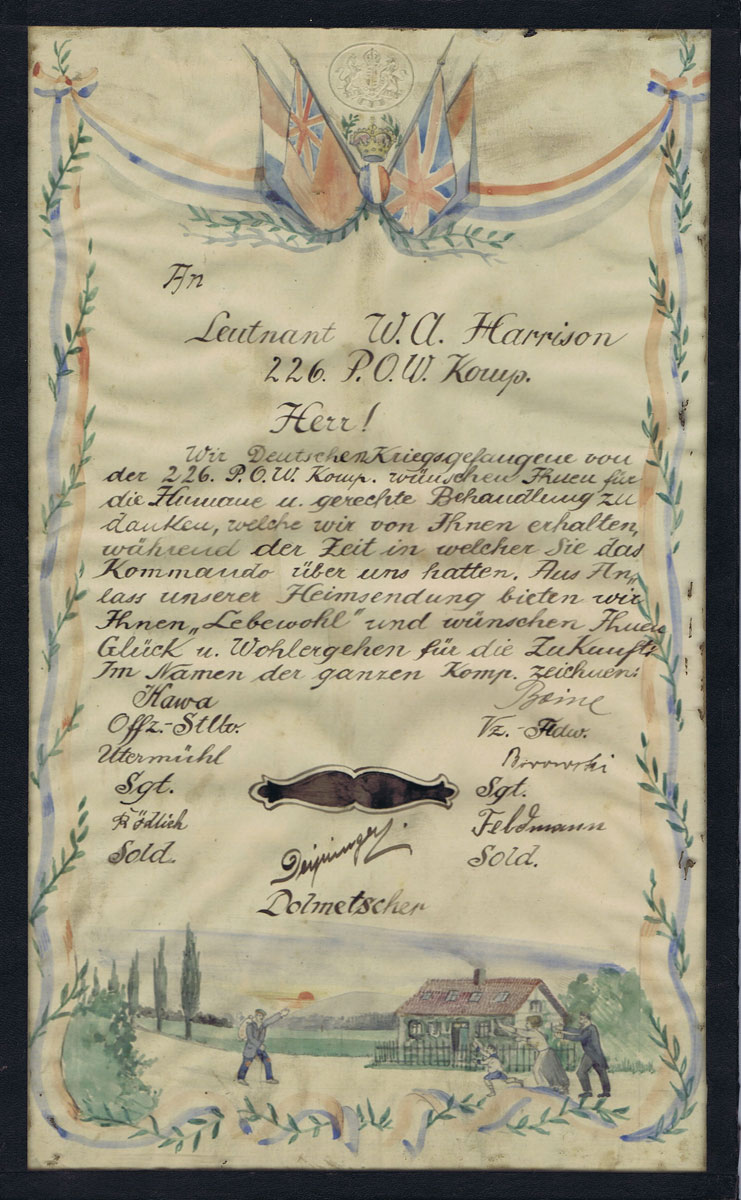 An
Leutnant W. A. Harrison
226. P.O.W. Komp.
Herr!
Wir Deutschen Kriegsgefangene von
der 226. P.O.W. Komp. wünschen Ihnen für
die Humane u. gerechte Behandlung zu
danken, welche wir von Ihnen erhalten,
während der Zeit in welcher Sie das
Kommando über uns hatten. Aus An„
lass unserer Heimsendung bieten wir
Ihnen „Lebewohl" und wünschen Ihnen
Glück u. Wohlergehen für die Zukunft:
Im Namen der ganzen Komp. zeichnen:
Hawa
Offz.-Stlv.
Utermühl
Sgt.
Rödlich
Sold.
Beine
Vz.-Fldw.
Borowski
Sgt.
Feldmann
Sold.
Dolmetscher